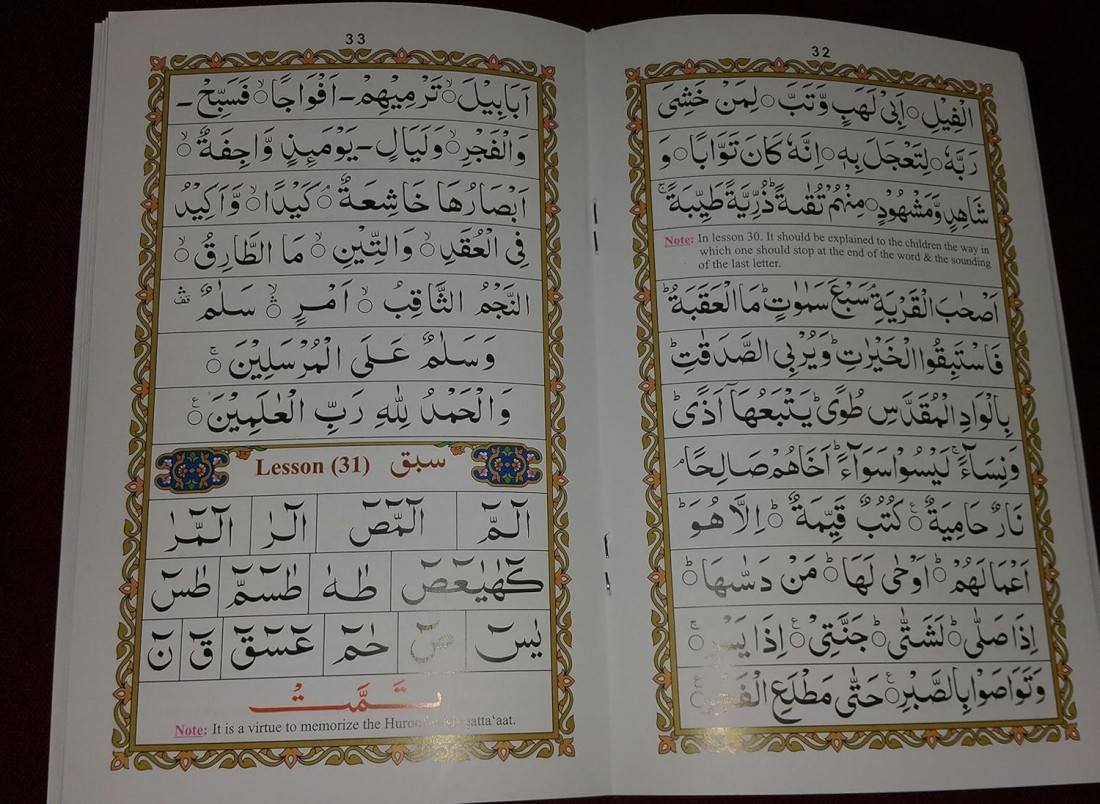 32
الْفِيْلِ ۝ اَبِىْ لَهَبٍ وَّتَبَّ ۝ لِمَنْ خَشِىَ
رَبَّهٗ ۝ لِتَعْجَلَ بِهٖ ۝ اِنَّهٗ كَانَ تَوَّابًا ۝ وَ
شَاهِدٍ وَّمَشْهُوْدٍ ۝ مِنْهُمْ تُقٰىةً ؕ ذُرِّيَّةً طَيِّبَةً ۚ
Note: In lesson 30. It should be explained to the children the way in
which one should stop at the end of the word & the sounding
of the last letter.
اَصْحٰبَ الْقَرْيَةِ ۘ سَبْعَ سَمٰوٰتٍ ؕ مَا الْعَقَبَةُ ؕ
فَاسْتَبِقُوا الْخَيْرٰتِ ؕ وَيُرْبِى الصَّدَقٰتِ ؕ
بِالْوَادِ الْمُقَدَّسِ طُوًى ؕ يَتْبَعُهَاۤ اَذًى ؕ
وَنِسَآءً ۚ لَيْسُوْا سَوَآءً ؕ اَخَاهُمْ صَالِحًا ۘ
نَارٌ حَامِيَةٌ ۝ كُتُبٌ قَيِّمَةٌ ؕ ۝ اِلَّا هُوَ ؕ
اَعْمَالَهُمْ ؕ ۝ اَوْحٰى لَهَا ؕ ۝ مَنْ دَسّٰىهَا ؕ ۝
اِذَا صَلّٰى ؕ ۝ لَشَتّٰى ؕ ۝ جَنَّتِىْ ۝ اِذَا يَسْرِ ۚ ۝
وَتَوَاصَوْا بِالصَّبْرِ ۝ حَتّٰى مَطْلَعِ
33
اَبَابِيْلَ ۙ ۝ تَرْمِيْهِمْ ـ اَفْوَاجًا ۙ ۝ فَسَبِّحْ ـ
وَالْفَجْرِ ۙ ۝ وَلَيَالٍ ـ يَوْمَئِذٍ وَّاجِفَةٌ ۙ ۝
اَبْصَارُهَا خَاشِعَةٌ ۘ ۝ كَيْدًا ۙ ۝ وَّاَكِيْدُ
فِى الْعُقَدِ ۙ ۝ وَالتِّيْنِ ۙ ۝ مَا الطَّارِقُ ۙ ۝
النَّجْمُ الثَّاقِبُ ۙ ۝ اَمْرٍ ۙ ۝ سَلٰمٌ
وَسَلٰمٌ عَلَى الْمُرْسَلِيْنَ ۚ ۝
وَالْحَمْدُ لِلّٰهِ رَبِّ الْعٰلَمِيْنَ ۝
Lesson (31) سبق
الٓمّٓ الٓمّٓصٓ الٓرٰ الٓمّٓرٰ
كٓهٰيٰعٓصٓ طٰهٰ طٰسٓمّٓ طٰسٓ
يٰسٓ صٓ حٰمٓ عٓسٓقٓ قٓ نٓ
تَمَّتْ
Note: It is a virtue to memorize the